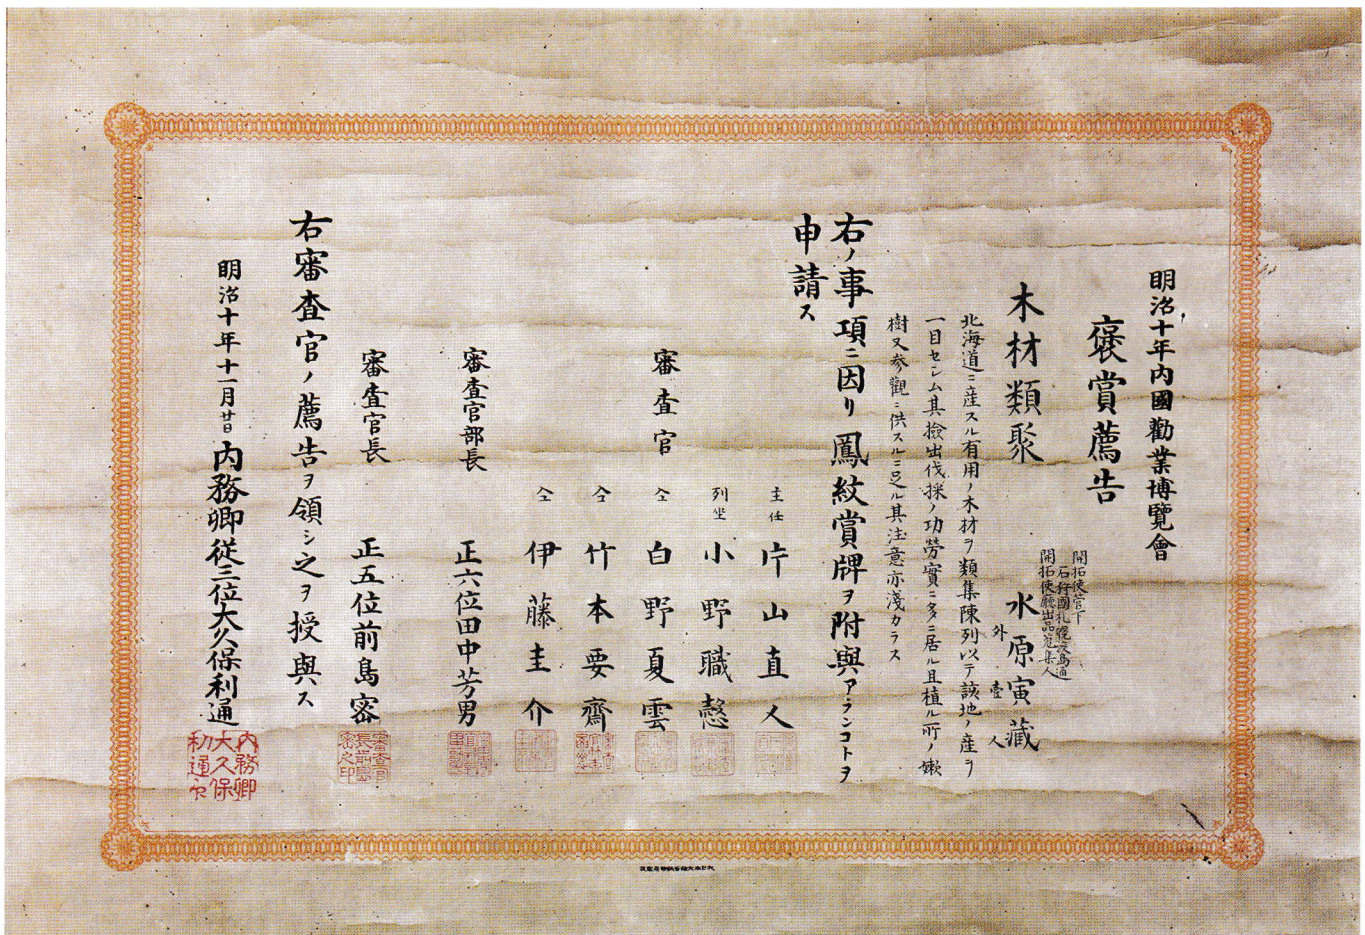 明治十年内國勸業博覽會
褒賞薦告
開拓使管下
石狩國札幌渡島通
開拓使廳出品蒐集人
木材類聚　水原寅藏
外壹人
北海道ニ産スル有用ノ木材ヲ類集陳列以テ該地ノ産ヲ
一目セシム其撿出伐採ノ功勞實ニ多ニ居ル且植ル所ノ嫩
樹又参觀ニ供スルニ足ル其注意亦淺カラス
右ノ事項ニ因リ鳳紋賞牌ヲ附與アランコトヲ
申請ス
主任　片山直人
審査官　列坐　小野職愨
仝　白野夏雲
仝　竹本要齋
仝　伊藤圭介
審査官部長　正六位田中芳男
審査官長　正五位前島密
右審査官ノ薦告ヲ領シ之ヲ授與ス
明治十年十一月廿日　内務卿從三位大久保利通
内務卿
大久保
利通印